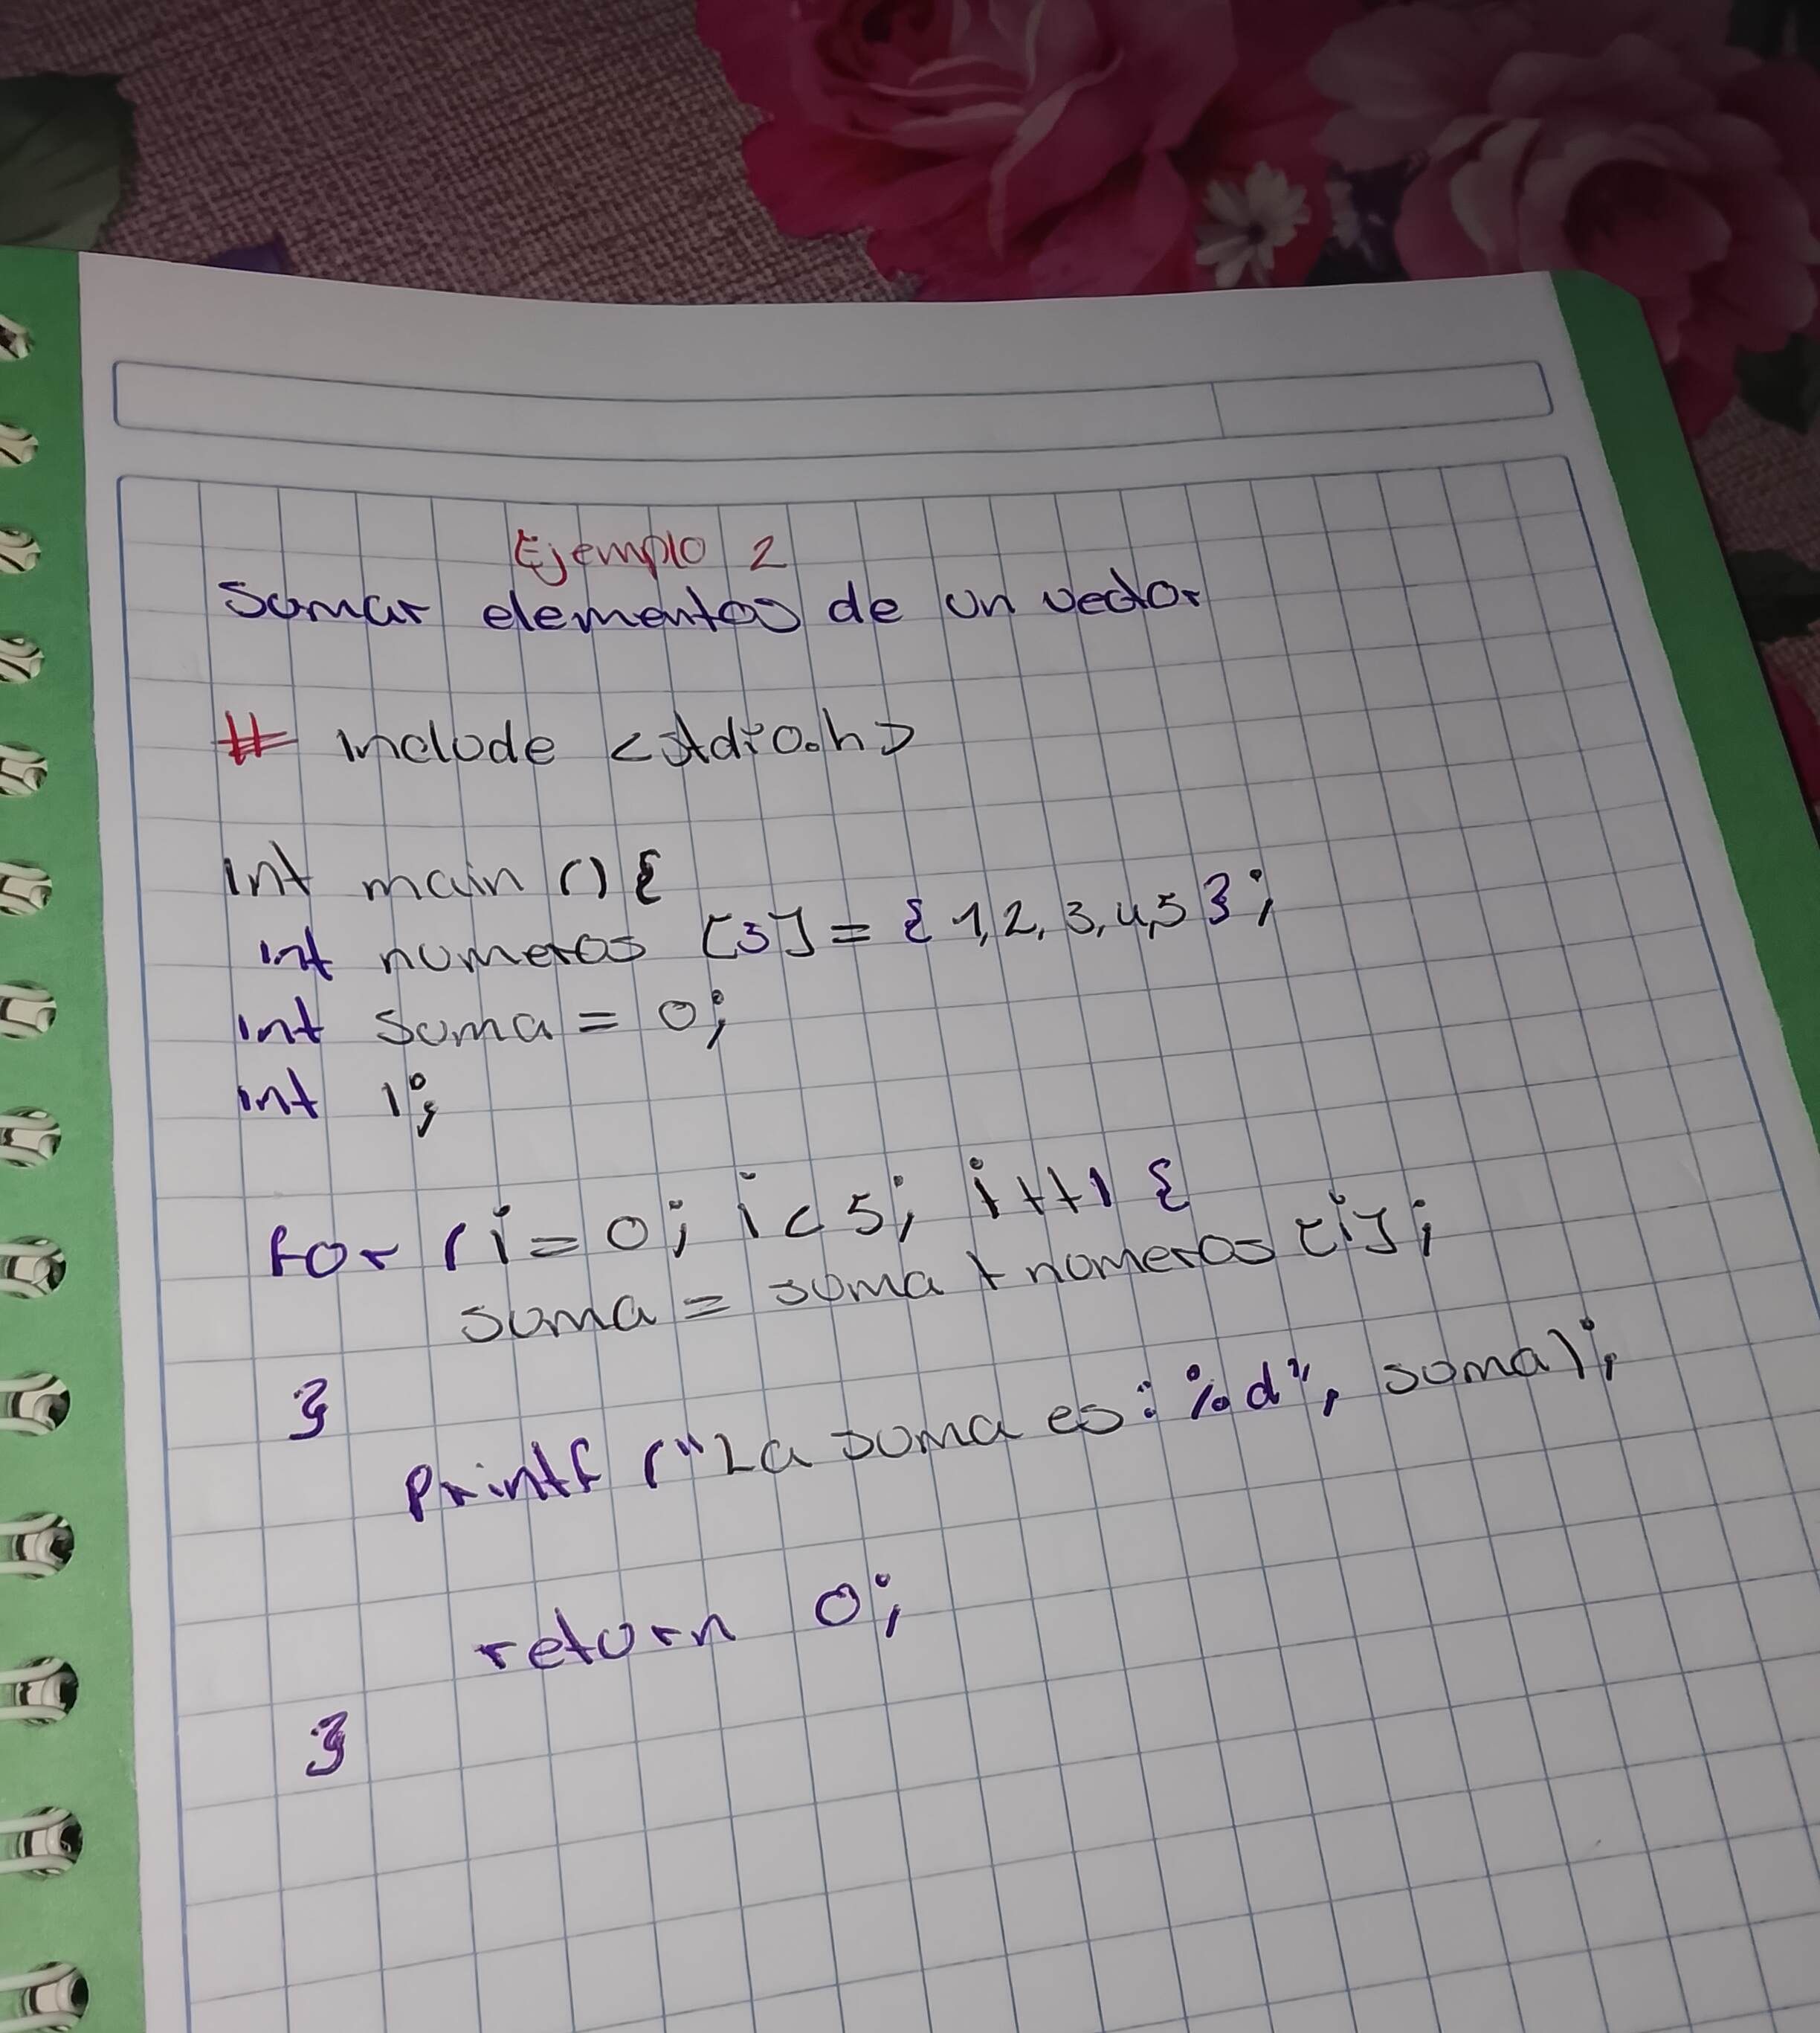 Ejemplo 2
Sumar elementos de un vector
# include <stdio.h>
int main () {
int numeros [5] = { 1, 2, 3, 4, 5 };
int suma = 0;
int i;
for ( i = 0; i < 5; i ++) {
suma = suma + numeros [i];
}
printf ("La suma es: %d", suma);
return 0;
}